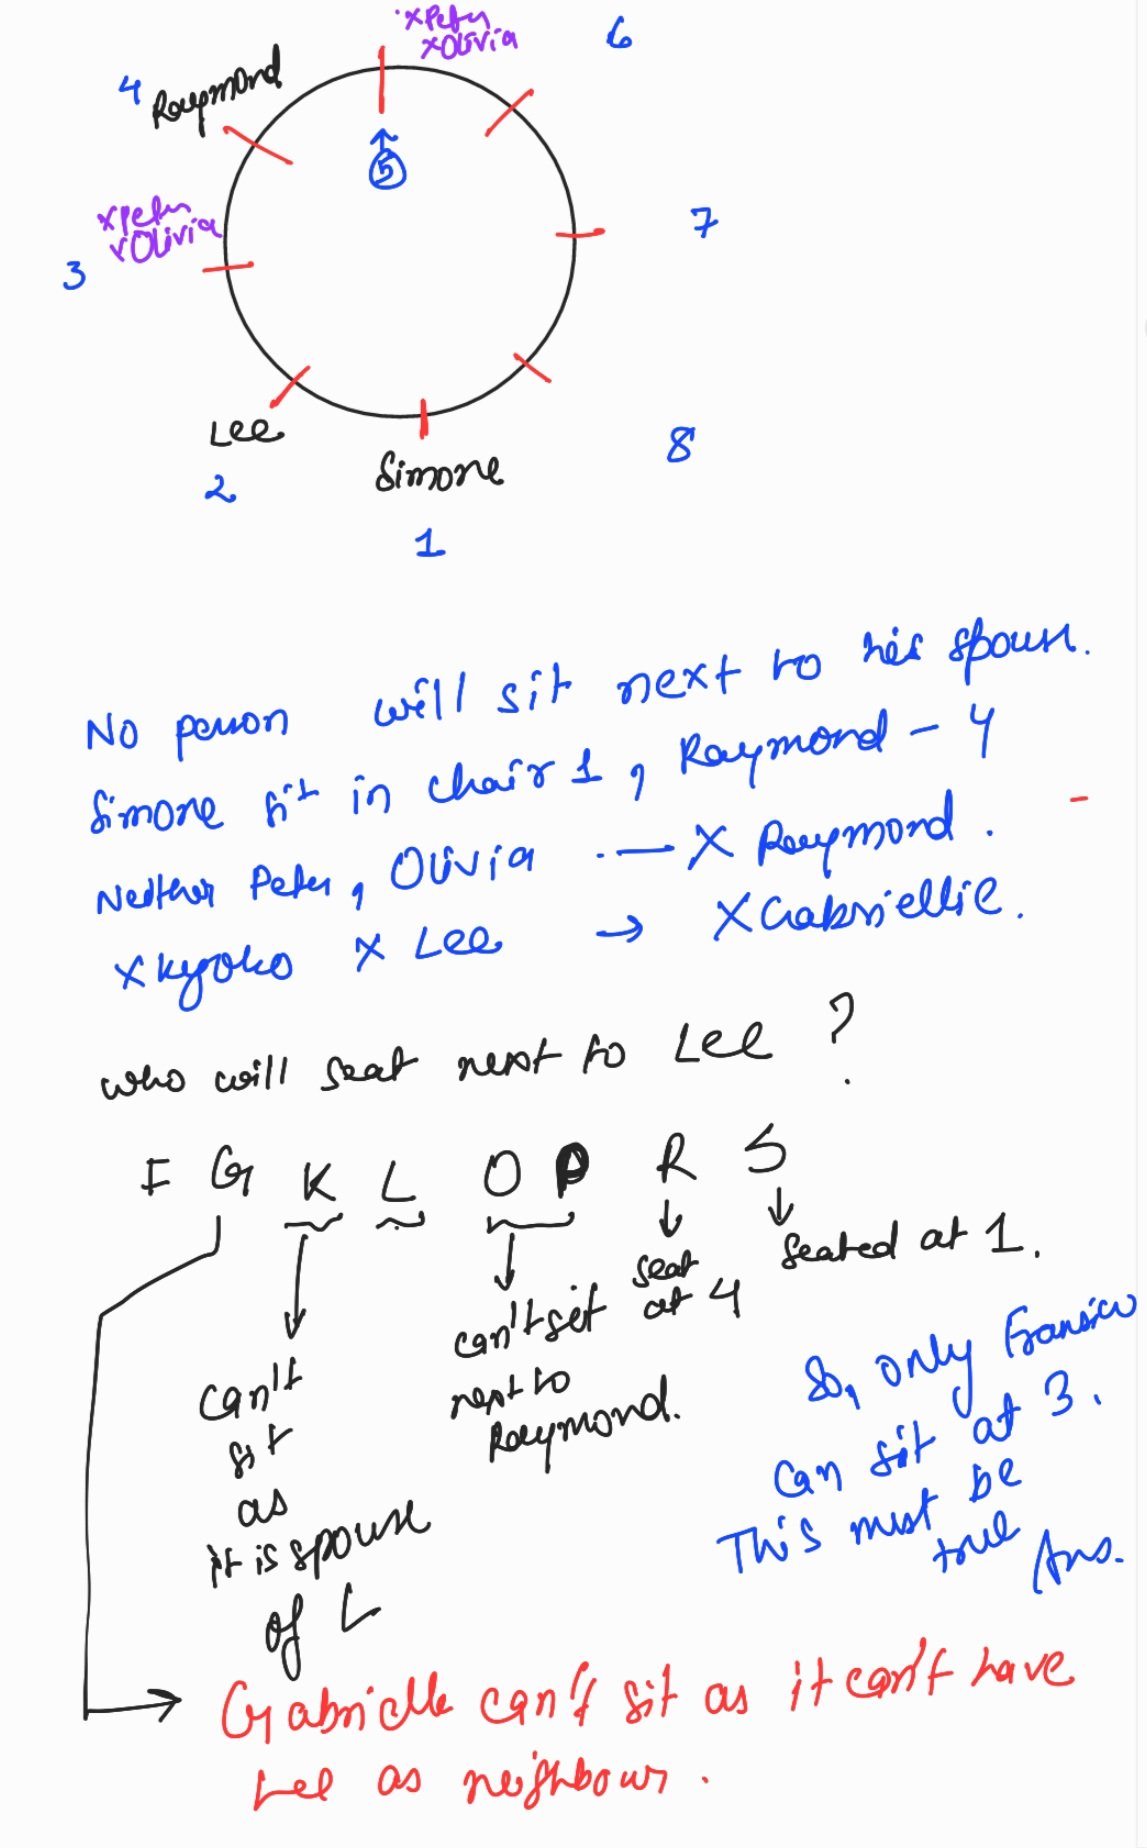 xPeter
xOlivia
6
4
Raymond
5
xPeter
xOlivia
7
3
Lee
2
Simone
8
1
No person will sit next to his spouse.
Simone sit in chair 1, Raymond - 4
Neither Peter, Olivia — X Raymond.
x Kyoko x Lee → X Gabriellie.
who will seat next to Lee ?
F G K L O P R S
seated at 1.
seat
at 4
can't sit
next to
Raymond.
can't
sit
as
it is spouse
of L
So, only Fransico
can sit at 3.
This must be
true Ans.
Gabrielle can't sit as it can't have
Lee as neighbour.